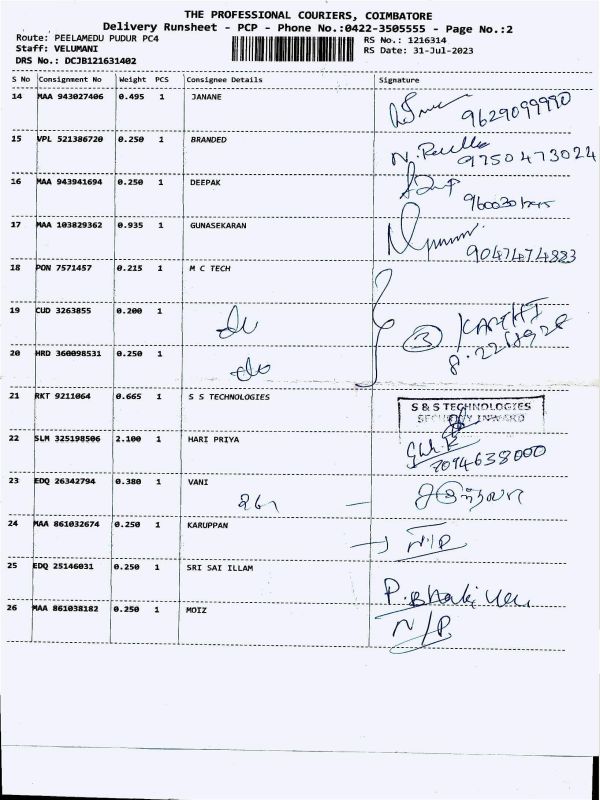 THE PROFESSIONAL COURIERS, COIMBATORE
Delivery Runsheet - PCP - Phone No.:0422-3505555 - Page No.:2
Route: PEELAMEDU PUDUR PC4 RS No.: 1216314
Staff: VELUMANI RS Date: 31-Jul-2023
DRS No.: DCJB121631402
S No Consignment No Weight PCS Consignee Details Signature
14 MAA 943027406 0.495 1 JANANE
9629099990
15 VPL 521386720 0.250 1 BRANDED
9750473024
16 MAA 943941694 0.250 1 DEEPAK
17 MAA 103829362 0.935 1 GUNASEKARAN
9047474883
18 PON 7571457 0.215 1 M C TECH
19 CUD 3263855 0.200 1 do
3 KARTHI
20 HRD 360098531 0.250 1 do
21 RKT 9211064 0.665 1 S S TECHNOLOGIES
S & S TECHNOLOGIES
SECURITY INWARD
22 SLM 325198506 2.100 1 HARI PRIYA
7094638000
23 EDQ 26342794 0.380 1 VANI
24 MAA 861032674 0.250 1 KARUPPAN
N/P
25 EDQ 25146031 0.250 1 SRI SAI ILLAM
26 MAA 861038182 0.250 1 MOIZ
N/P